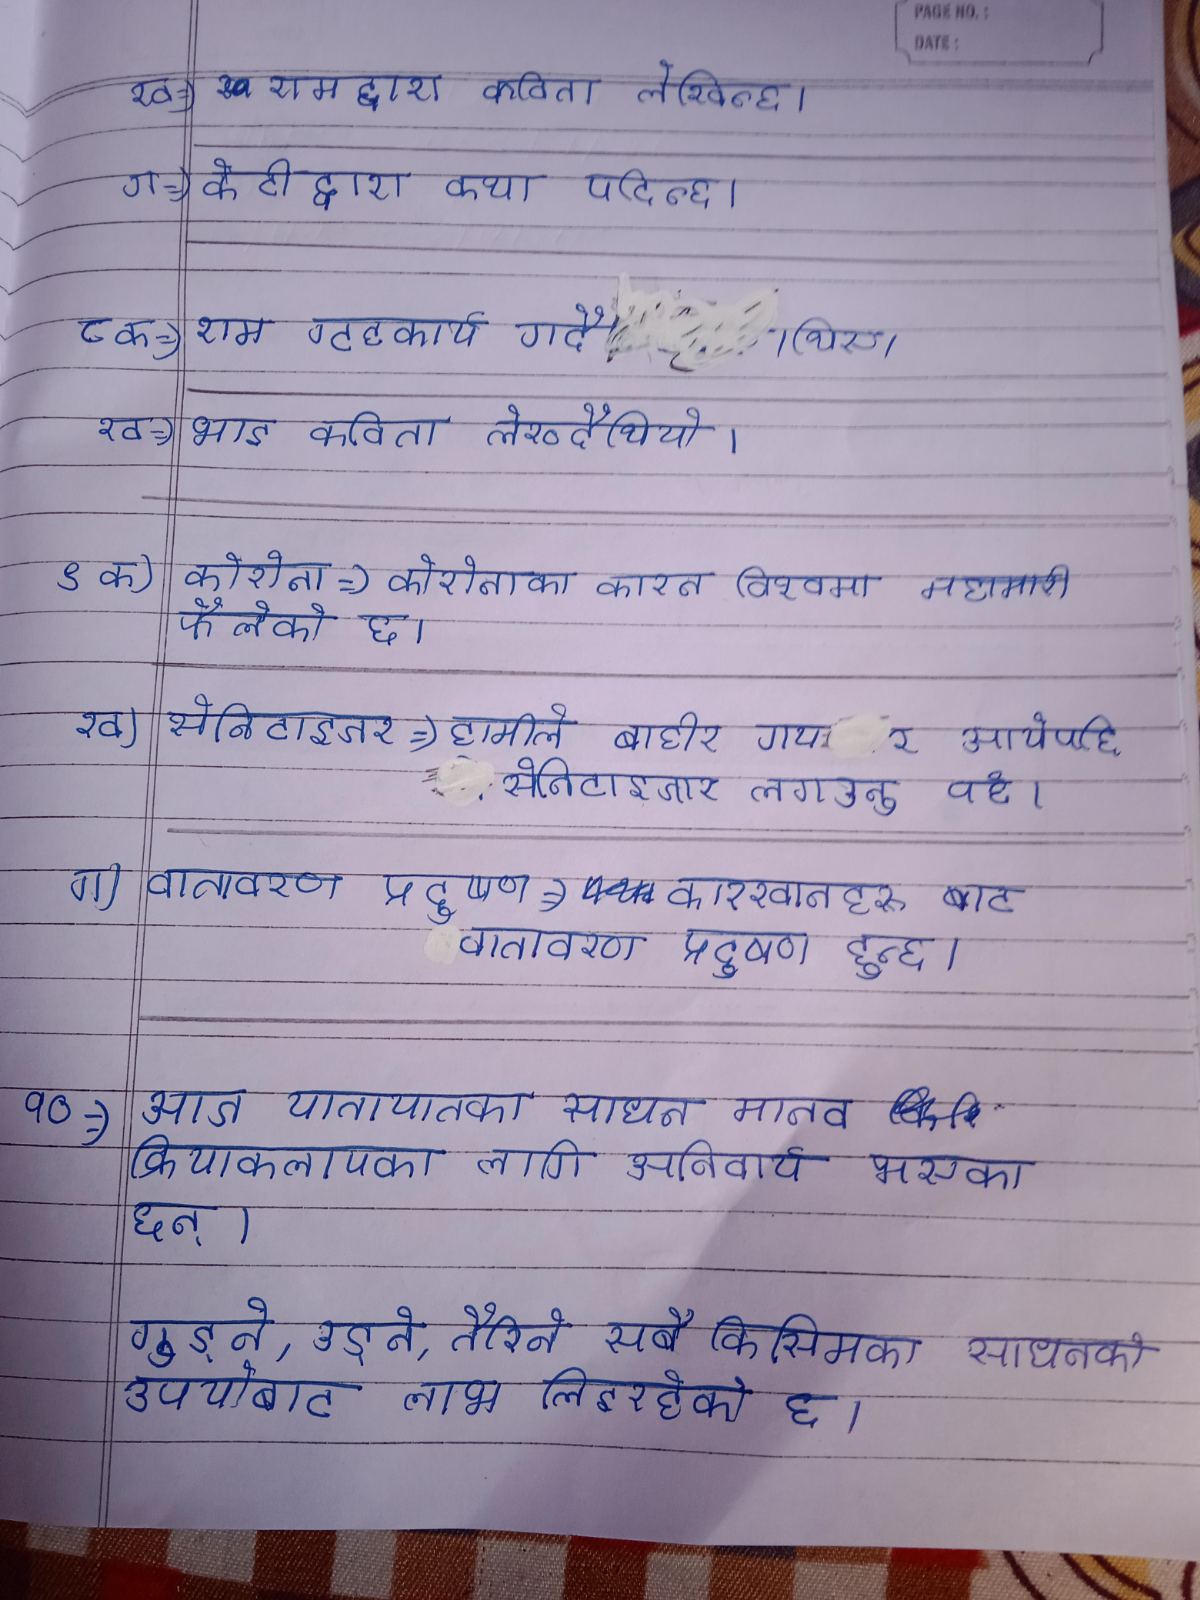 PAGE NO. :
DATE :
ख⇒ रामद्वारा कविता लेखिन्छ।
ग⇒ केटीद्वारा कथा पढिन्छ।
८ क⇒ राम गृहकार्य गर्दै । थिए।
ख⇒ भाइ कविता लेख्दैथियो।
९ क) कोरोना⇒ कोरोनाका कारन विश्वमा महामारी
फैलेको छ।
ख) सेनिटाइजर⇒ हामीले बाहीर गय र आयेपछि
सेनिटाइजार लगाउनु पर्छ।
ग) वातावरण प्रदुषण⇒ कारखानहरू बाट
वातावरण प्रदुषण हुन्छ।
१०⇒ आज यातायातका साधन मानव
क्रियाकलापका लागि अनिवार्य भएका
छन्।
गुड्ने, उड्ने, तैरिने सबै किसिमका साधनको
उपयोबाट लाभ लिइरहेको छ।